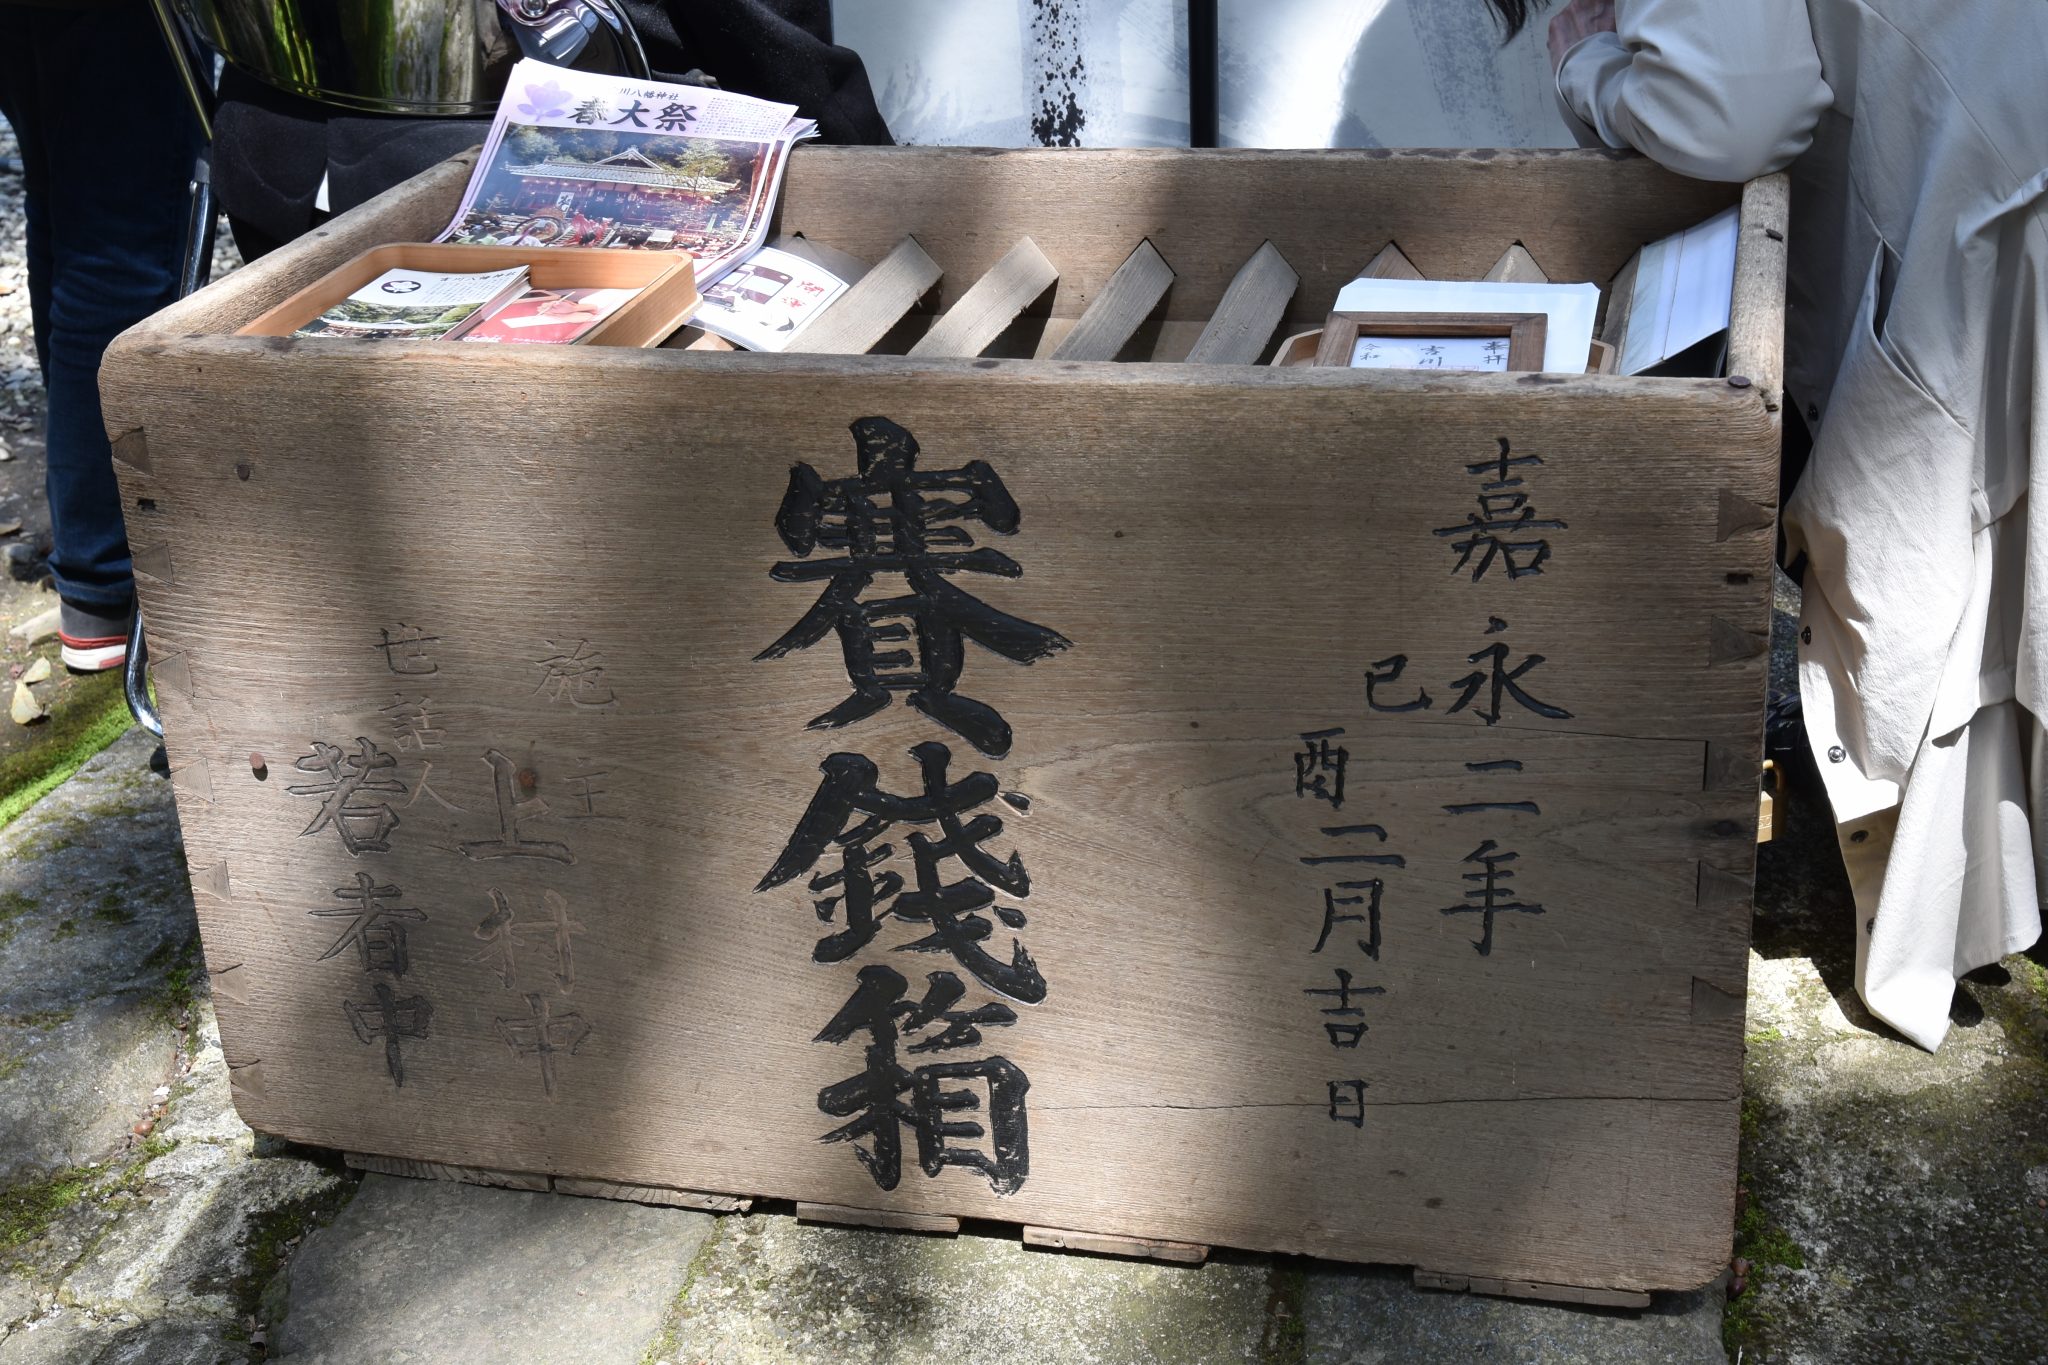 川八幡神社
春大祭
奉拝
吉川
令和
嘉永二年
己酉二月吉日
賽錢箱
施主
上村中
世話人
若者中